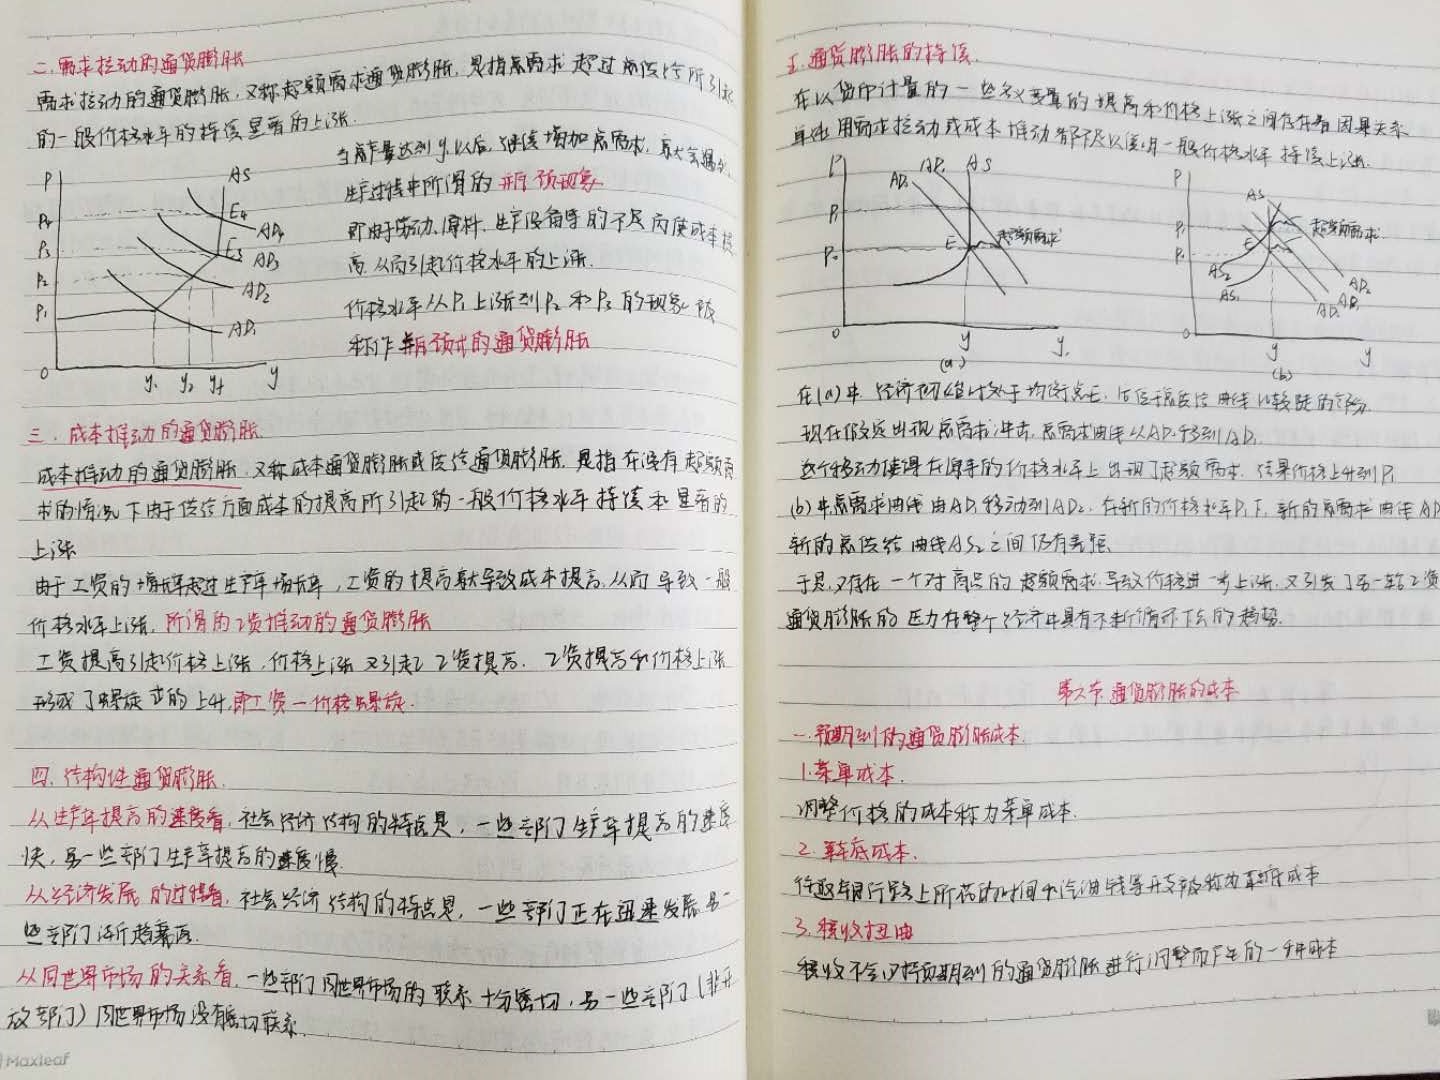 二.需求拉动的通货膨胀
需求拉动的通货膨胀,又称超额需求通货膨胀,是指总需求超过总供给所引起
的一般价格水平的持续显著的上涨.
当总产量达到y₁以后,继续增加总需求,就会遇到
生产过程中所谓的瓶颈现象
即由于劳动、原料、生产设备等的不足而使成本提
高,从而引起价格水平的上涨.
价格水平从P₁上涨到P₂和P₃的现象被
称作瓶颈式的通货膨胀
P
P₄
P₃
P₂
P₁
0
y₁
y₂
yf
y
AS
E₄
AD₄
E₃
AD₃
AD₂
AD₁
三.成本推动的通货膨胀
成本推动的通货膨胀,又称成本通货膨胀或供给通货膨胀,是指在没有超额需
求的情况下由于供给方面成本的提高所引起的一般价格水平持续和显著的
上涨
由于工资的增长率超过生产率增长率,工资的提高就导致成本提高,从而导致一般
价格水平上涨,所谓的工资推动的通货膨胀
工资提高引起价格上涨,价格上涨又引起工资提高.工资提高和价格上涨
形成了螺旋式的上升,即工资—价格螺旋.
四.结构性通货膨胀.
从生产率提高的速度看,社会经济结构的特点是,一些部门生产率提高的速度
快,另一些部门生产率提高的速度慢.
从经济发展的过程看,社会经济结构的特点是,一些部门正在迅速发展,另一
些部门渐趋衰落.
从同世界市场的关系看,一些部门同世界市场的联系十分密切,另一些部门(非开
放部门)同世界市场没有密切联系.
Maxleaf
五.通货膨胀的持续.
在以货币计量的一些名义变量的提高和价格上涨之间存在着因果关系
单纯用需求拉动或成本推动都不足以说明一般价格水平持续上涨.
P
P₁
P₀
0
AD₀
AD₁
AS
E
超额需求
y
y₁
(a)
P
P₁
P₀
0
AS
E
AS₂
AS₁
超额需求
AD₂
AD₁
AD₀
y
y
(b)
在(a)中,经济初始时处于均衡点E,E位于总供给曲线比较陡的部分.
现在假定出现总需求冲击,总需求曲线从AD₀移到AD₁.
这个移动使得在原来的价格水平上出现了超额需求.结果价格上升到P₁
(b)中总需求曲线由AD₁移动到AD₂,在新的价格水平P₁下,新的总需求曲线AD
新的总供给曲线AS₂之间仍有差距.
于是,又存在一个对商品的超额需求,导致价格进一步上涨,又引发了另一轮工资
通货膨胀的压力在整个经济中具有不断循环下去的趋势.
第六节 通货膨胀的成本
一.预期到的通货膨胀成本
1.菜单成本.
调整价格的成本称为菜单成本.
2.鞋底成本.
往返银行路上所花的时间和汽油钱等开支被称为鞋底成本
3.税收扭曲
税收不会对预期到的通货膨胀进行调整而产生的一种成本